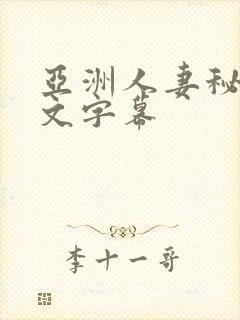 亞洲人妻秘
文字幕
李十一哥